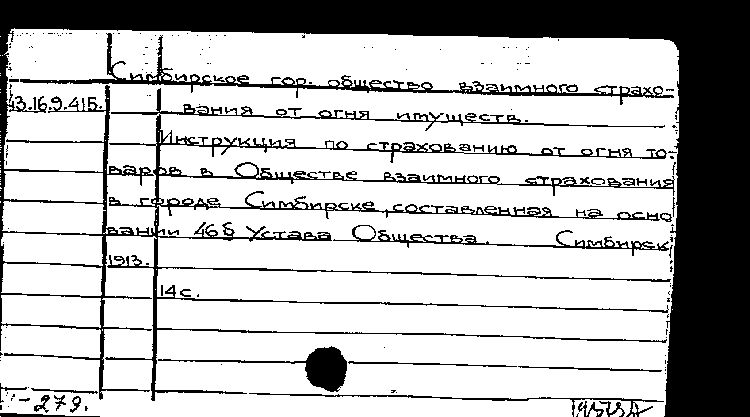 Симбирское гор. общество взаимного страхо-
43.16.9.415. вания от огня имуществ.
Инструкция по страхованию от огня то-
варов в Обществе взаимного страхования
в городе Симбирске, составленная на осно
вании 46§ Устава Общества. Симбирск
1913.
14 с.
-279.